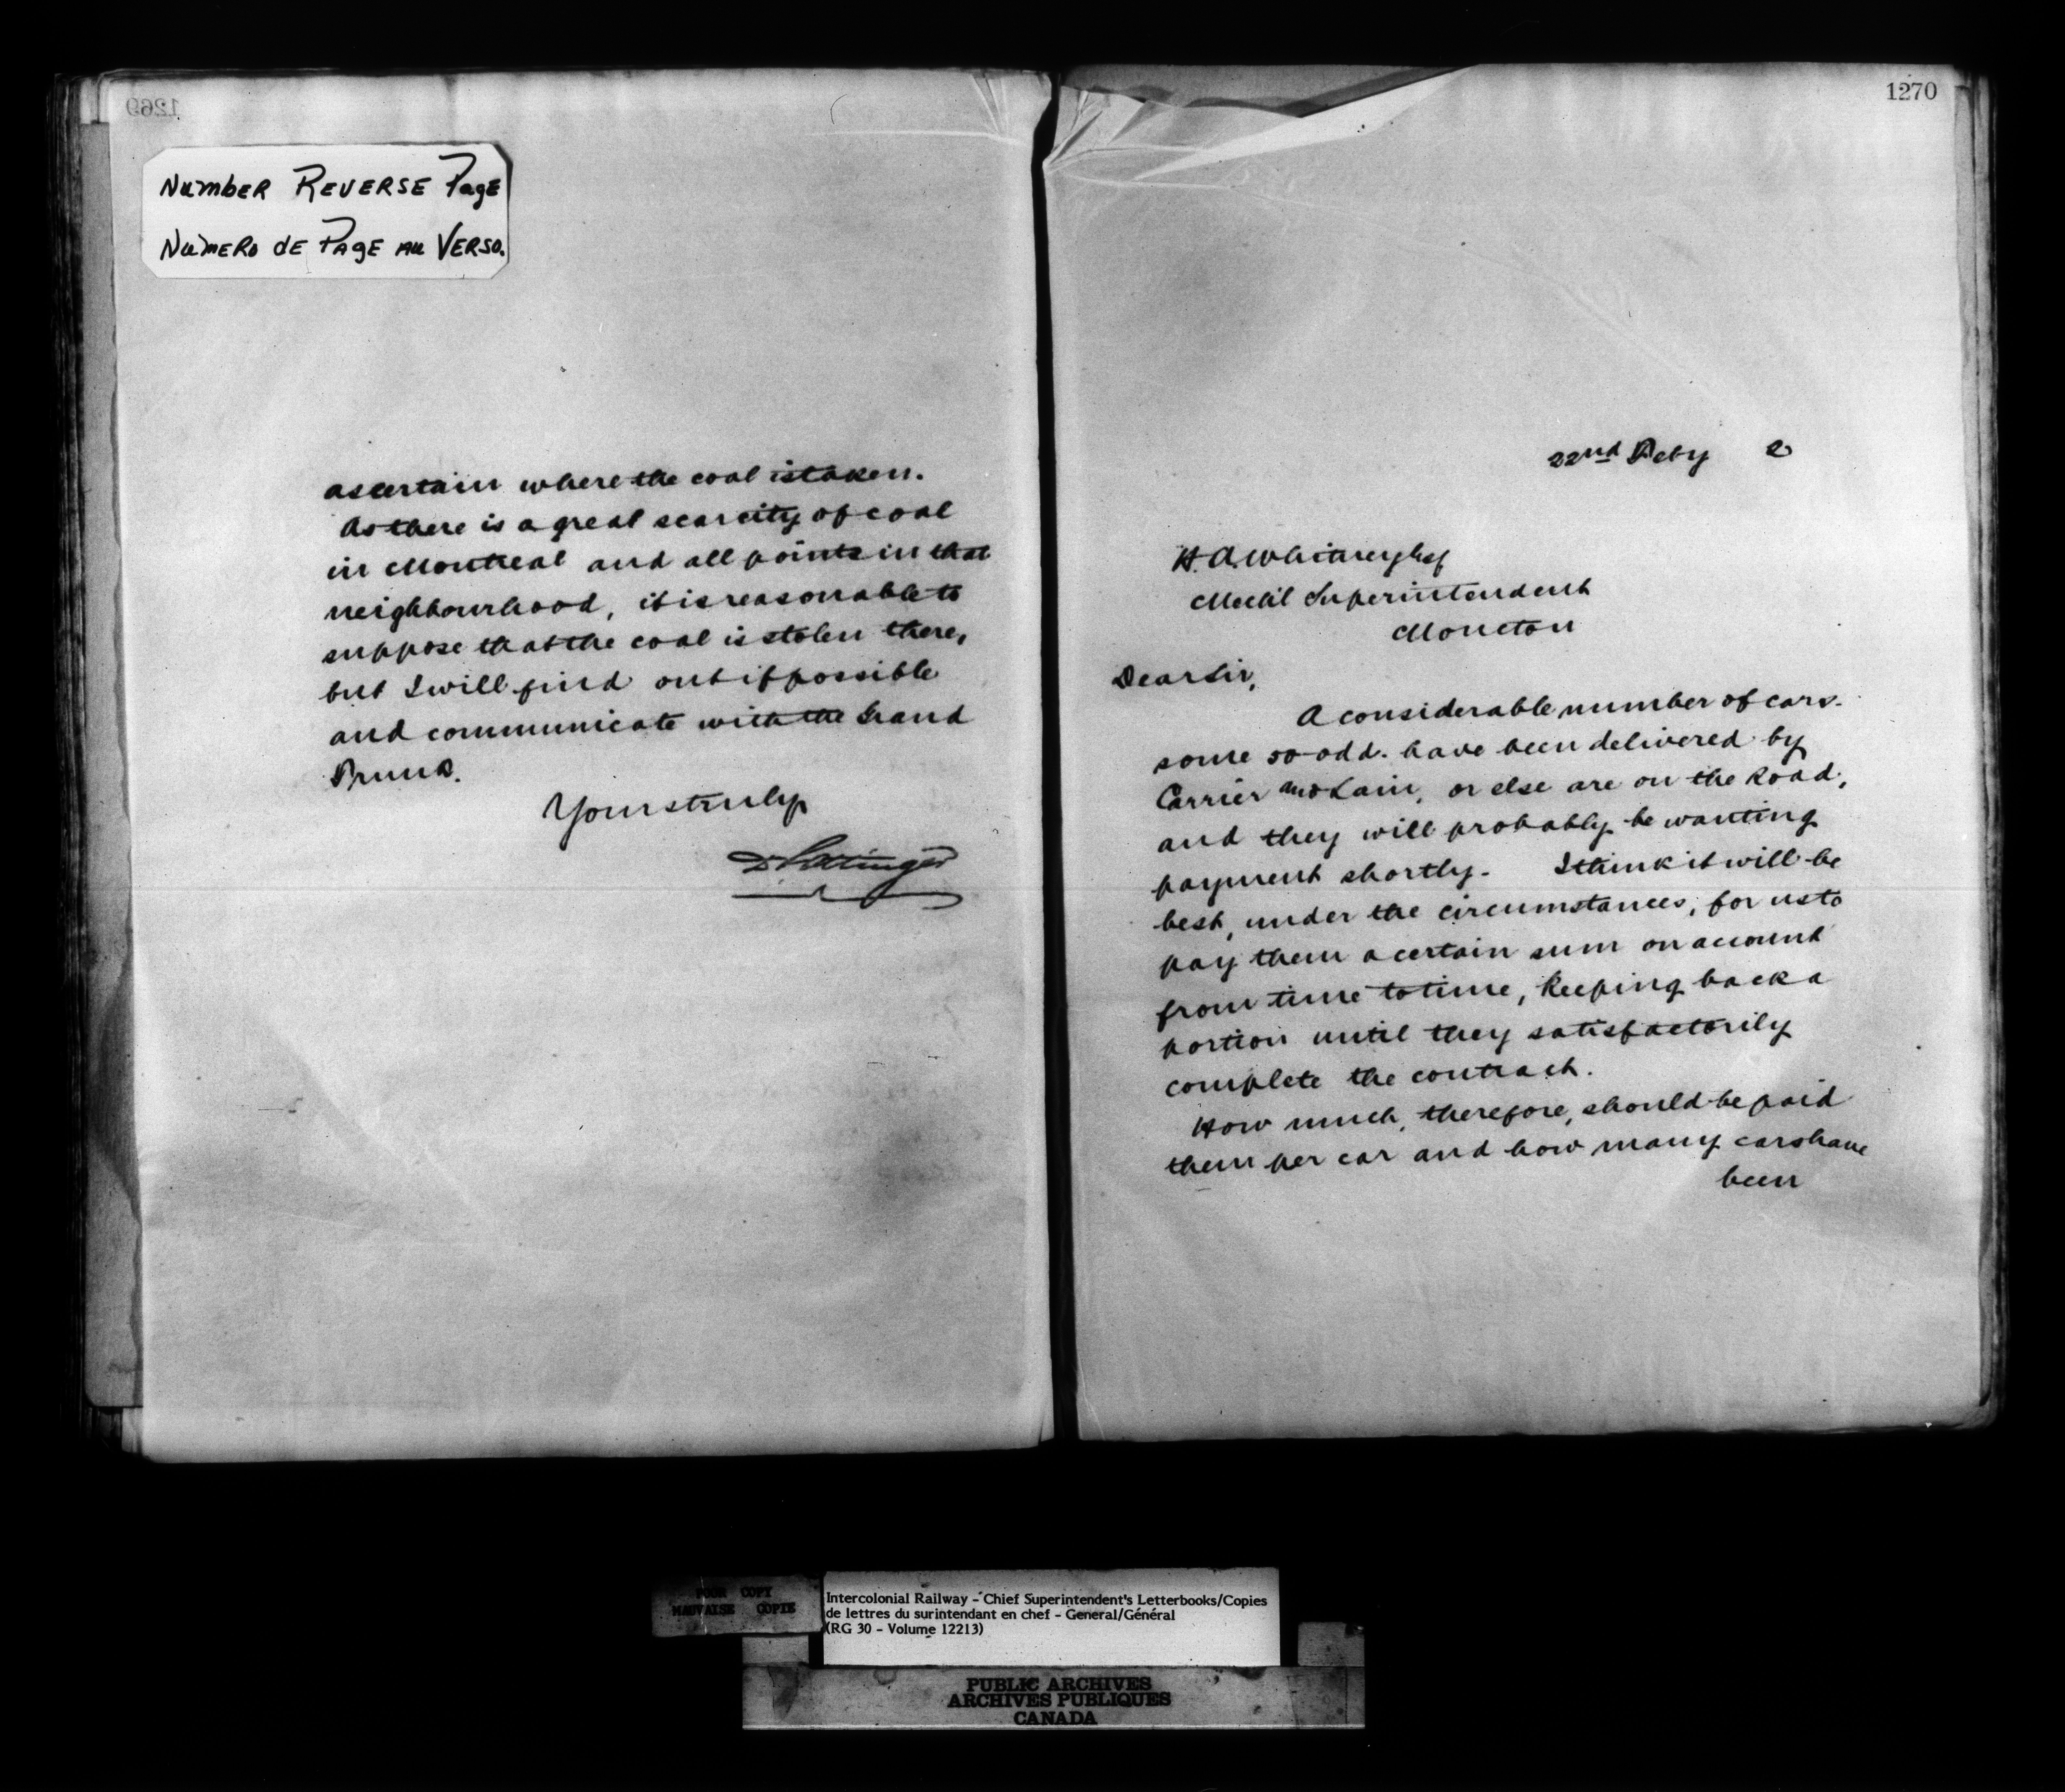 1269
Number Reverse Page
Numero de Page au Verso.
ascertain where the coal is taken.
As there is a great scarcity of coal
in Montreal and all points in that
neighbourhood, it is reasonable to
suppose that the coal is stolen there,
but I will find out if possible
and communicate with the Grand
Trunk.
Yours truly
D Pottinger
1270
22nd Feby 2
H. A. Whitney Esq
Mechl Superintendent
Moncton
Dear Sir,
A considerable number of cars.
some 50 odd. have been delivered by
Carrier and Lain, or else are on the Road,
and they will probably be wanting
payment shortly. I think it will be
best, under the circumstances, for us to
pay them a certain sum on account
from time to time, keeping back a
portion until they satisfactorily
complete the contract.
How much, therefore, should be paid
them per car and how many cars have
been
POOR COPY
MAUVAISE COPIE
Intercolonial Railway - Chief Superintendent's Letterbooks/Copies
de lettres du surintendant en chef - General/Général
(RG 30 - Volume 12213)
PUBLIC ARCHIVES
ARCHIVES PUBLIQUES
CANADA